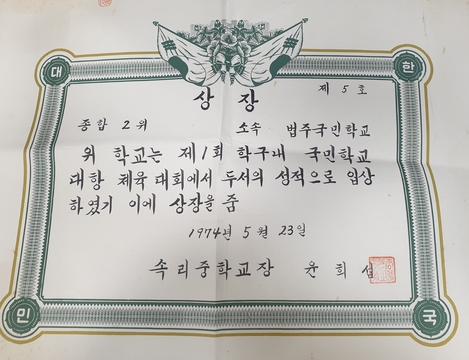 대 한
상 장
제 5 호
종합 2 위 소속 법주국민학교
위 학교는 제1회 학구내 국민학교
대항 체육 대회에서 두서의 성적으로 입상
하였기 이에 상장을 줌
1974년 5 월 23일
속리중학교장 윤 희
민 국